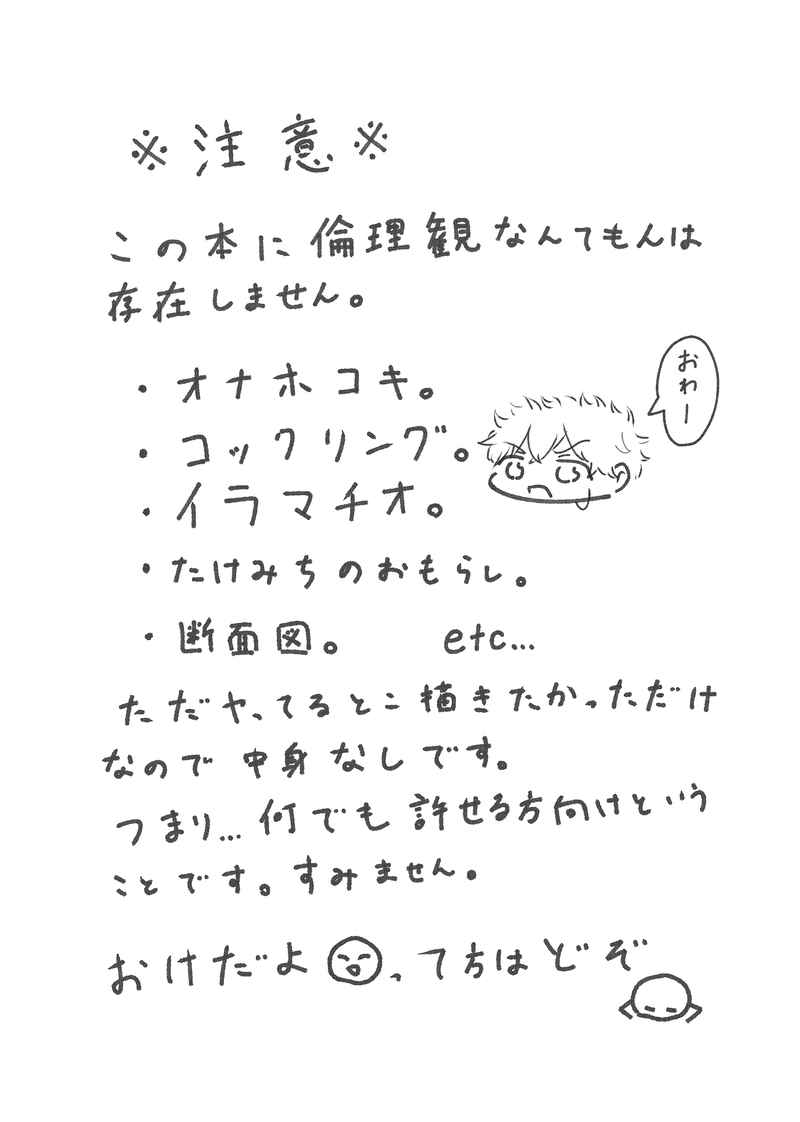 ※注意※
この本に倫理観なんてもんは
存在しません。
・オナホコキ。
おわー
・コックリング。
・イラマチオ。
・たけみちのおもらし。
・断面図。 etc...
ただヤってるとこ描きたかっただけ
なので中身なしです。
つまり...何でも許せる方向けという
ことです。すみません。
おけだよって方はどぞ